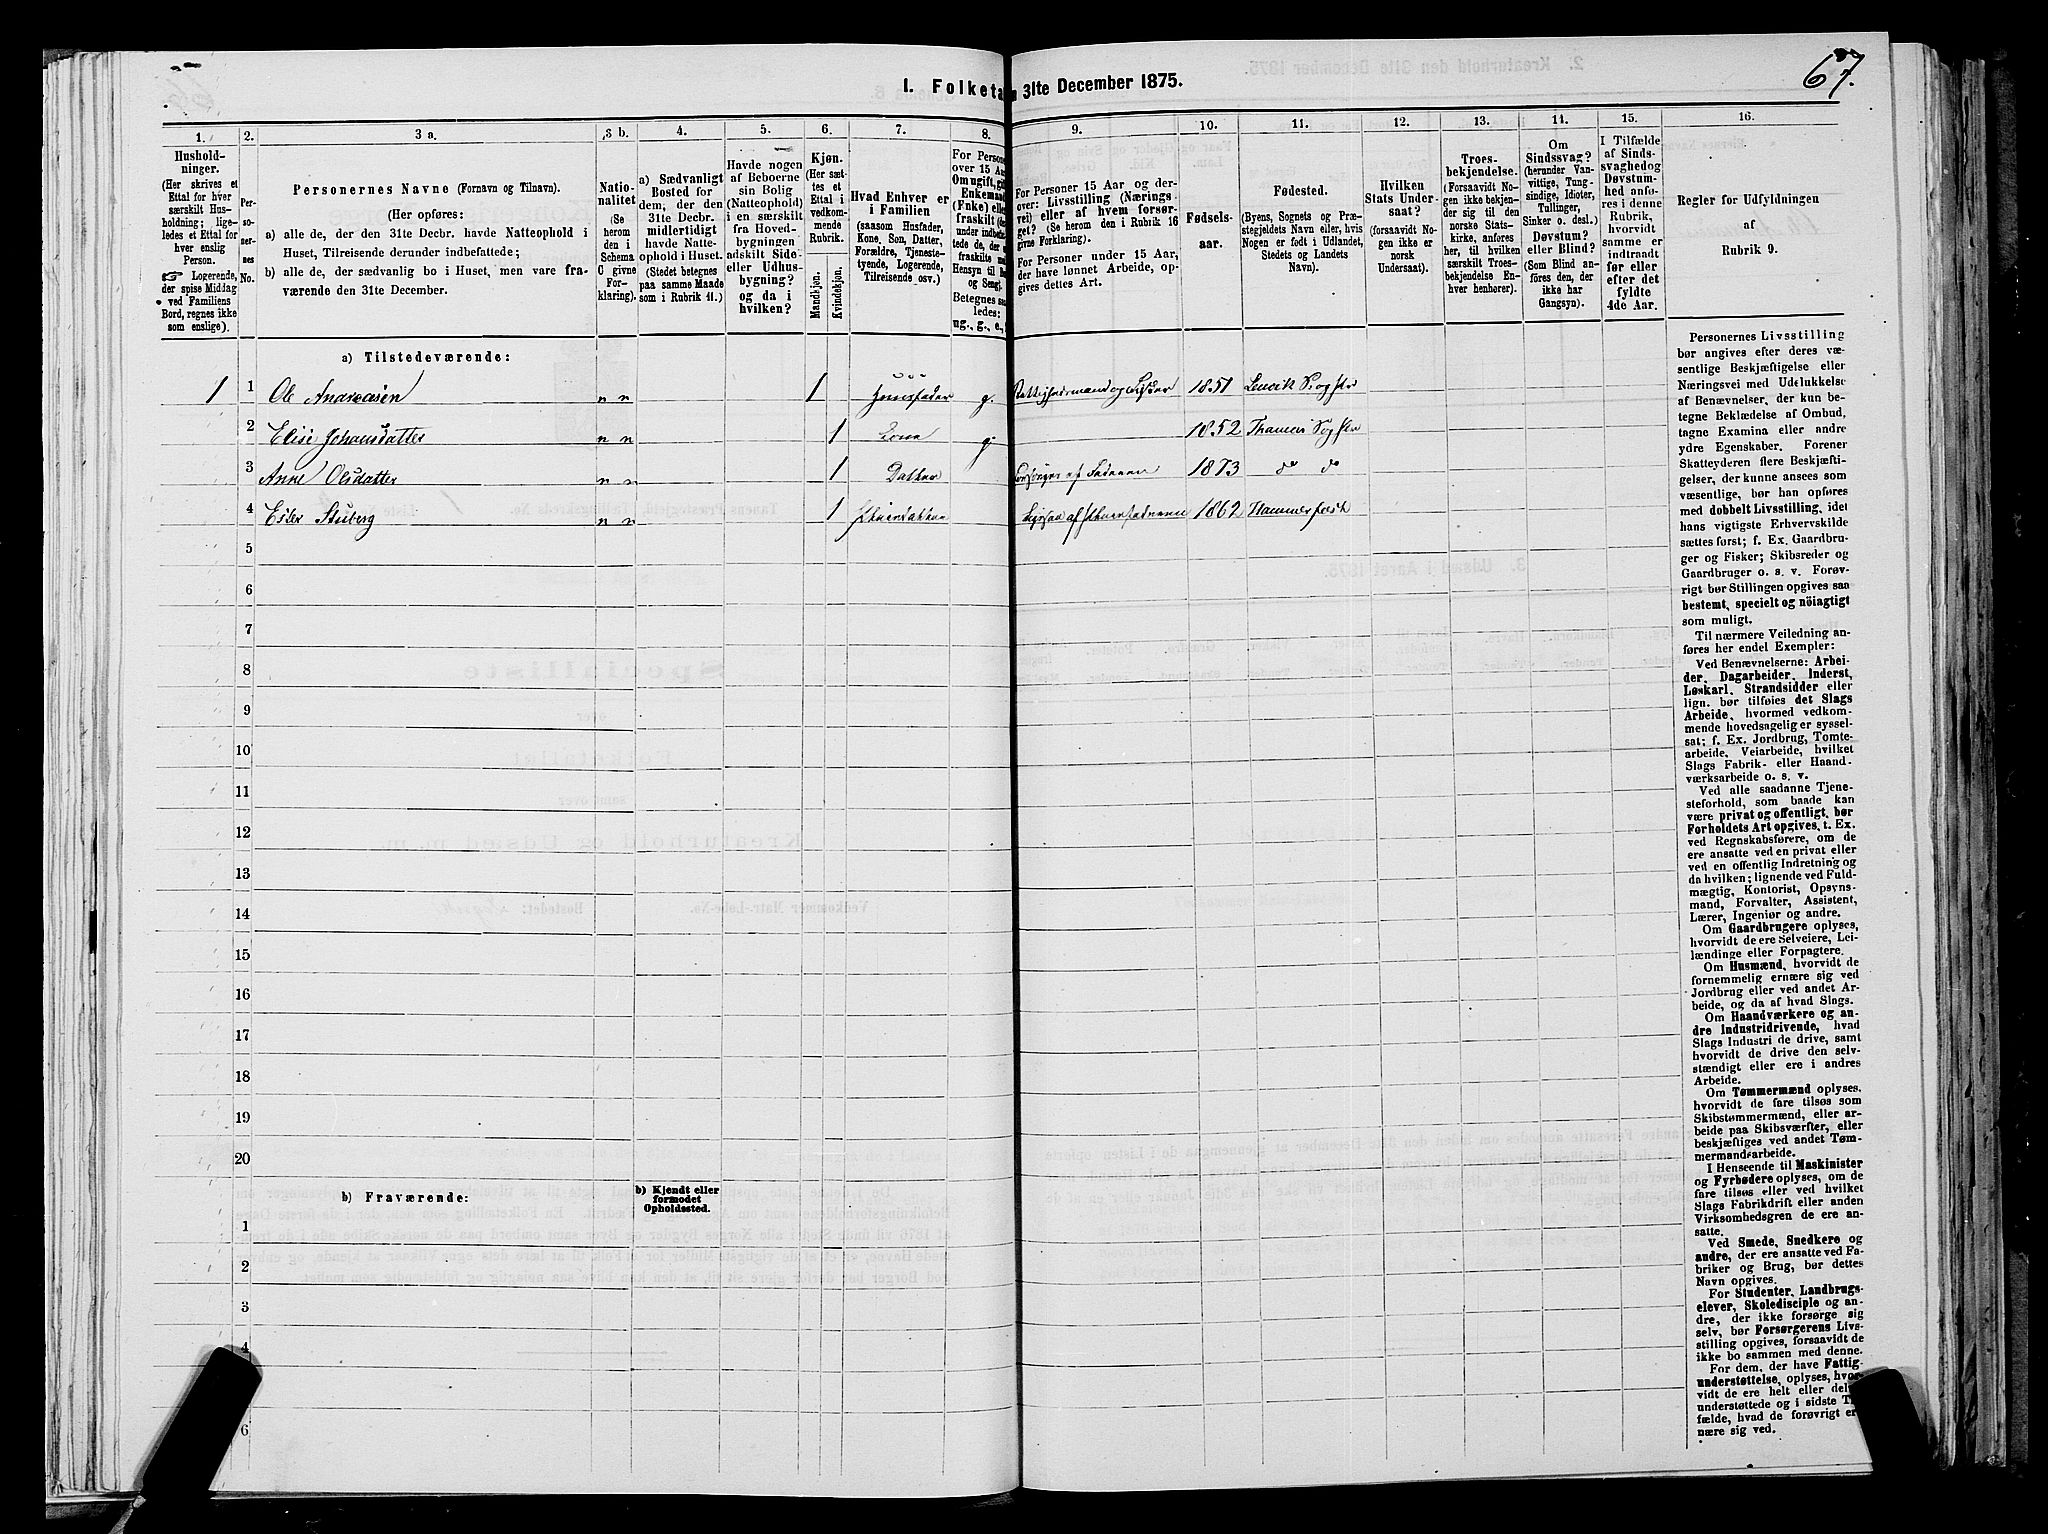 67.
I. Folketa
n 31te December 1875.
1. 2. 3 a. 3 b. 4. 5. 6. 7. 8. 9. 10. 11. 12. 13. 14. 15. 16.
Hushold-
ninger.
(Her skrives et
Ettal for hver
særskilt Hus-
holdning; lige-
ledes et Ettal for
hver enslig
Person.
☞ Logerende,
der spise Middag
ved Familiens
Bord, regnes ikke
som enslige).
Per-
so-
ner-
nes
No.
Personernes Navne (Fornavn og Tilnavn).
(Her opføres:
a) alle de, der den 31te Decbr. havde Natteophold i
Huset, Tilreisende derunder indbefattede;
b) alle de, der sædvanlig bo i Huset, men vare fra-
værende den 31te December.
Natio-
nalitet
(Se
herom
den i
Schema
C givne
For-
klaring).
a) Sædvanligt
Bosted for
dem, der den
31te Decbr.
midlertidigt
havde Natte-
ophold i Huset.
(Stedet betegnes
paa samme Maade
som i Rubrik 11.)
Havde nogen
af Beboerne
sin Bolig
(Natteophold)
i en særskilt
fra Hoved-
bygningen
adskilt Side-
eller Udhus-
bygning?
og da i
hvilken?
Kjøn.
(Her sæt-
tes et
Ettal i
vedkom-
mende
Rubrik.
Mandkjøn.
Kvindekjøn.
Hvad Enhver er
i Familien
(saasom Husfader,
Kone, Søn, Datter,
Forældre, Tjeneste-
tyende, Logerende,
Tilreisende osv.)
For Persone
over 15 Aar
Om ugift, gif
Enkemand
(Enke) elle
fraskilt
ledes:
ug., g., e.,
For Personer 15 Aar og der-
over: Livsstilling (Nærings
vei) eller af hvem forsør-
get? (Se herom den i Rubrik 16
givne Forklaring).
For Personer under 15 Aar,
der have lønnet Arbeide, op-
gives dettes Art.
Fødsels-
aar.
Fødested.
(Byens, Sognets og Præ-
stegjeldets Navn eller, hvis
Nogen er født i Udlandet,
Stedets og Landets
Navn).
Hvilken
Stats Under-
saat?
(forsaavidt No-
gen ikke er
norsk
Undersaat).
Troes-
bekjendelse.
(Forsaavidt No-
gen ikke bekjen-
der sig til den
norske Stats-
kirke, anføres
her, til hvilken
særskilt Troes-
bekjendelse En-
hver henhører).
Om
Sindssvag?
(herunder Van-
vittige, Tung-
sindige, Idioter,
Tullinger,
Sinker o. desl.)
Døvstum?
eller Blind?
(Som Blind an-
føres den, der
ikke har
Gangsyn).
I Tilfælde
af Sinds-
svaghed og
Døvstum-
hed anfø-
res i denne
Rubrik,
hvorvidt
samme er
indtraadt
før eller
efter det
fyldte
4de Aar.
Regler for Udfyldningen
af
Rubrik 9.
a) Tilstedeværende:
1 1 Ole Andreasen n n 1 Huusfader g. 1851
2 Elise Johansdatter n n 1 Kone g. 1852
3 Anne Olsdatter n n 1 Datter Forsørges af Faderen 1873 do do
4 Ester Stuberg n n 1 1862 Hammerfest
5
6
7
8
9
10
11
12
13
14
15
16
17
18
19
20
b) Fraværende:
b) Kjendt eller
formodet
Opholdssted.
1
2
3
4
6
Personernes Livsstilling
bør angives efter deres væ-
sentlige Beskjæftigelse eller
Næringsvei med Udelukkelse
af Benævnelser, der kun be-
tegne Beklædelse af Ombud,
tagne Examina eller andre
ydre Egenskaber. Forener
Skatteyderen flere Beskjæfti-
gelser, der kunne ansees som
væsentlige, bør han opføres
med dobbelt Livsstilling, idet
hans vigtigste Erhvervskilde
sættes først; f. Ex. Gaardbru-
ger og Fisker; Skibsreder og
Gaardbruger o. s. v. Forøv-
rigt bør Stillingen opgives saa
bestemt, specielt og nöiagtigt
som muligt.
Til nærmere Veiledning an-
føres her endel Exempler:
Ved Benævnelserne: Arbei-
der, Dagarbeider, Inderst,
Løskarl, Strandsidder eller
lign. bør tilføies det Slags
Arbeide, hvormed vedkom-
mende hovedsagelig er syssel-
sat; f. Ex. Jordbrug, Tomte-
arbeide, Veiarbeide, hvilket
Slags Fabrik- eller Haand-
værksarbeide o. s. v.
Ved alle saadanne Tjene-
steforhold, som baade kan
være privat og offentligt, bør
Forholdets Art opgives, t. Ex.
ved Regnskabsførere, om de
ere ansatte ved en privat eller
ved en offentlig Indretning og
da hvilken; lignende ved Fuld-
mægtig, Kontorist, Opsyns-
mand, Forvalter, Assistent,
Lærer, Ingeniør og andre.
Om Gaardbrugere oplyses,
hvorvidt de ere Selveiere, Lei-
lændinge eller Forpagtere.
Om Husmænd, hvorvidt de
fornemmelig ernære sig ved
Jordbrug eller ved andet Ar-
beide, og da af hvad Slags.
Om Haandværkere og an-
dre Industridrivende, hvad
Slags Industri de drive, samt
hvorvidt de drive den selv-
stændigt eller ere i andres
Arbeide.
Om Tømmermænd oplyses,
hvorvidt de fare tilsøs som
Skibstømmermænd, eller ar-
beide paa Skibsværfter, eller
beskjæftiges ved andet Tøm-
mermandsarbeide.
I Henseende til Maskinister
og Fyrbødere oplyses, om de
fare tilsøs eller ved hvilket
Slags Fabrikdrift eller anden
Virksomhedsgren de ere an-
satte.
Ved Smede, Snedkere og
andre, der ere ansatte ved Fa-
briker og Brug, bør dettes
Navn opgives.
For Studenter, Landbrugs-
elever, Skoledisciple og an-
dre, der ikke forsørge sig
selv, bør Forsørgerens Livs-
stilling opgives, forsaavidt de
ikke bo sammen med denne.
For dem, der have Fattig-
understøttelse, oplyses, hvor-
vidt de ere helt eller delv
understøttede og i sidste T
fælde, hvad de forøvrigt er
nære sig ved.